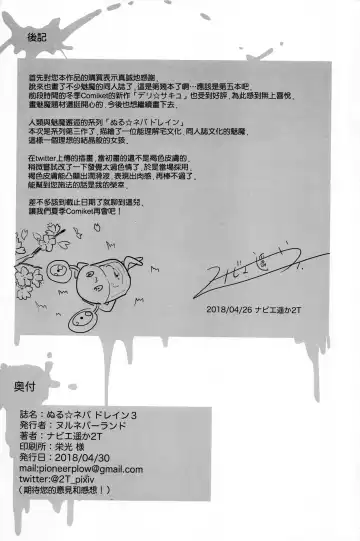 後記
首先對您本作品的購買表示真誠地感謝。
說來也畫了不少魅魔的同人誌了呢，這是第幾本了啊…應該是第五本吧。
前段時間的冬季Comiket的新作「デリ☆サキュ」也受到好評，為此感到無上喜悅，
畫魅魔題材還挺開心的，今後也想繼續畫下去。
人類與魅魔邂逅的系列「ぬる☆ネバ ドレイン」
本次是系列第三作了，描繪了一位能理解宅文化，同人誌文化的魅魔，
這樣一個理想的結晶般的女孩。
在twitter上傳的插畫，當初畫的還不是褐色皮膚的，
稍微嘗試改了一下發覺太過色情了，於是當場採用，
褐色皮膚能凸顯出潤滑液，表現出肉感，再棒不過了，
能幫到您施法的話是我的榮幸。
差不多該到截止日期了就聊到這兒，
讓我們夏季Comiket再會吧！
2018/04/26 ナビエ遥か2T
奥付
誌名：ぬる☆ネバ ドレイン３
発行者：ヌルネバーランド
著者：ナビエ遥か2T
印刷所：栄光 様
発行日：2018/04/30
mail:pioneerplow@gmail.com
twitter:@2T_pixiv
（期待您的意見和感想！）